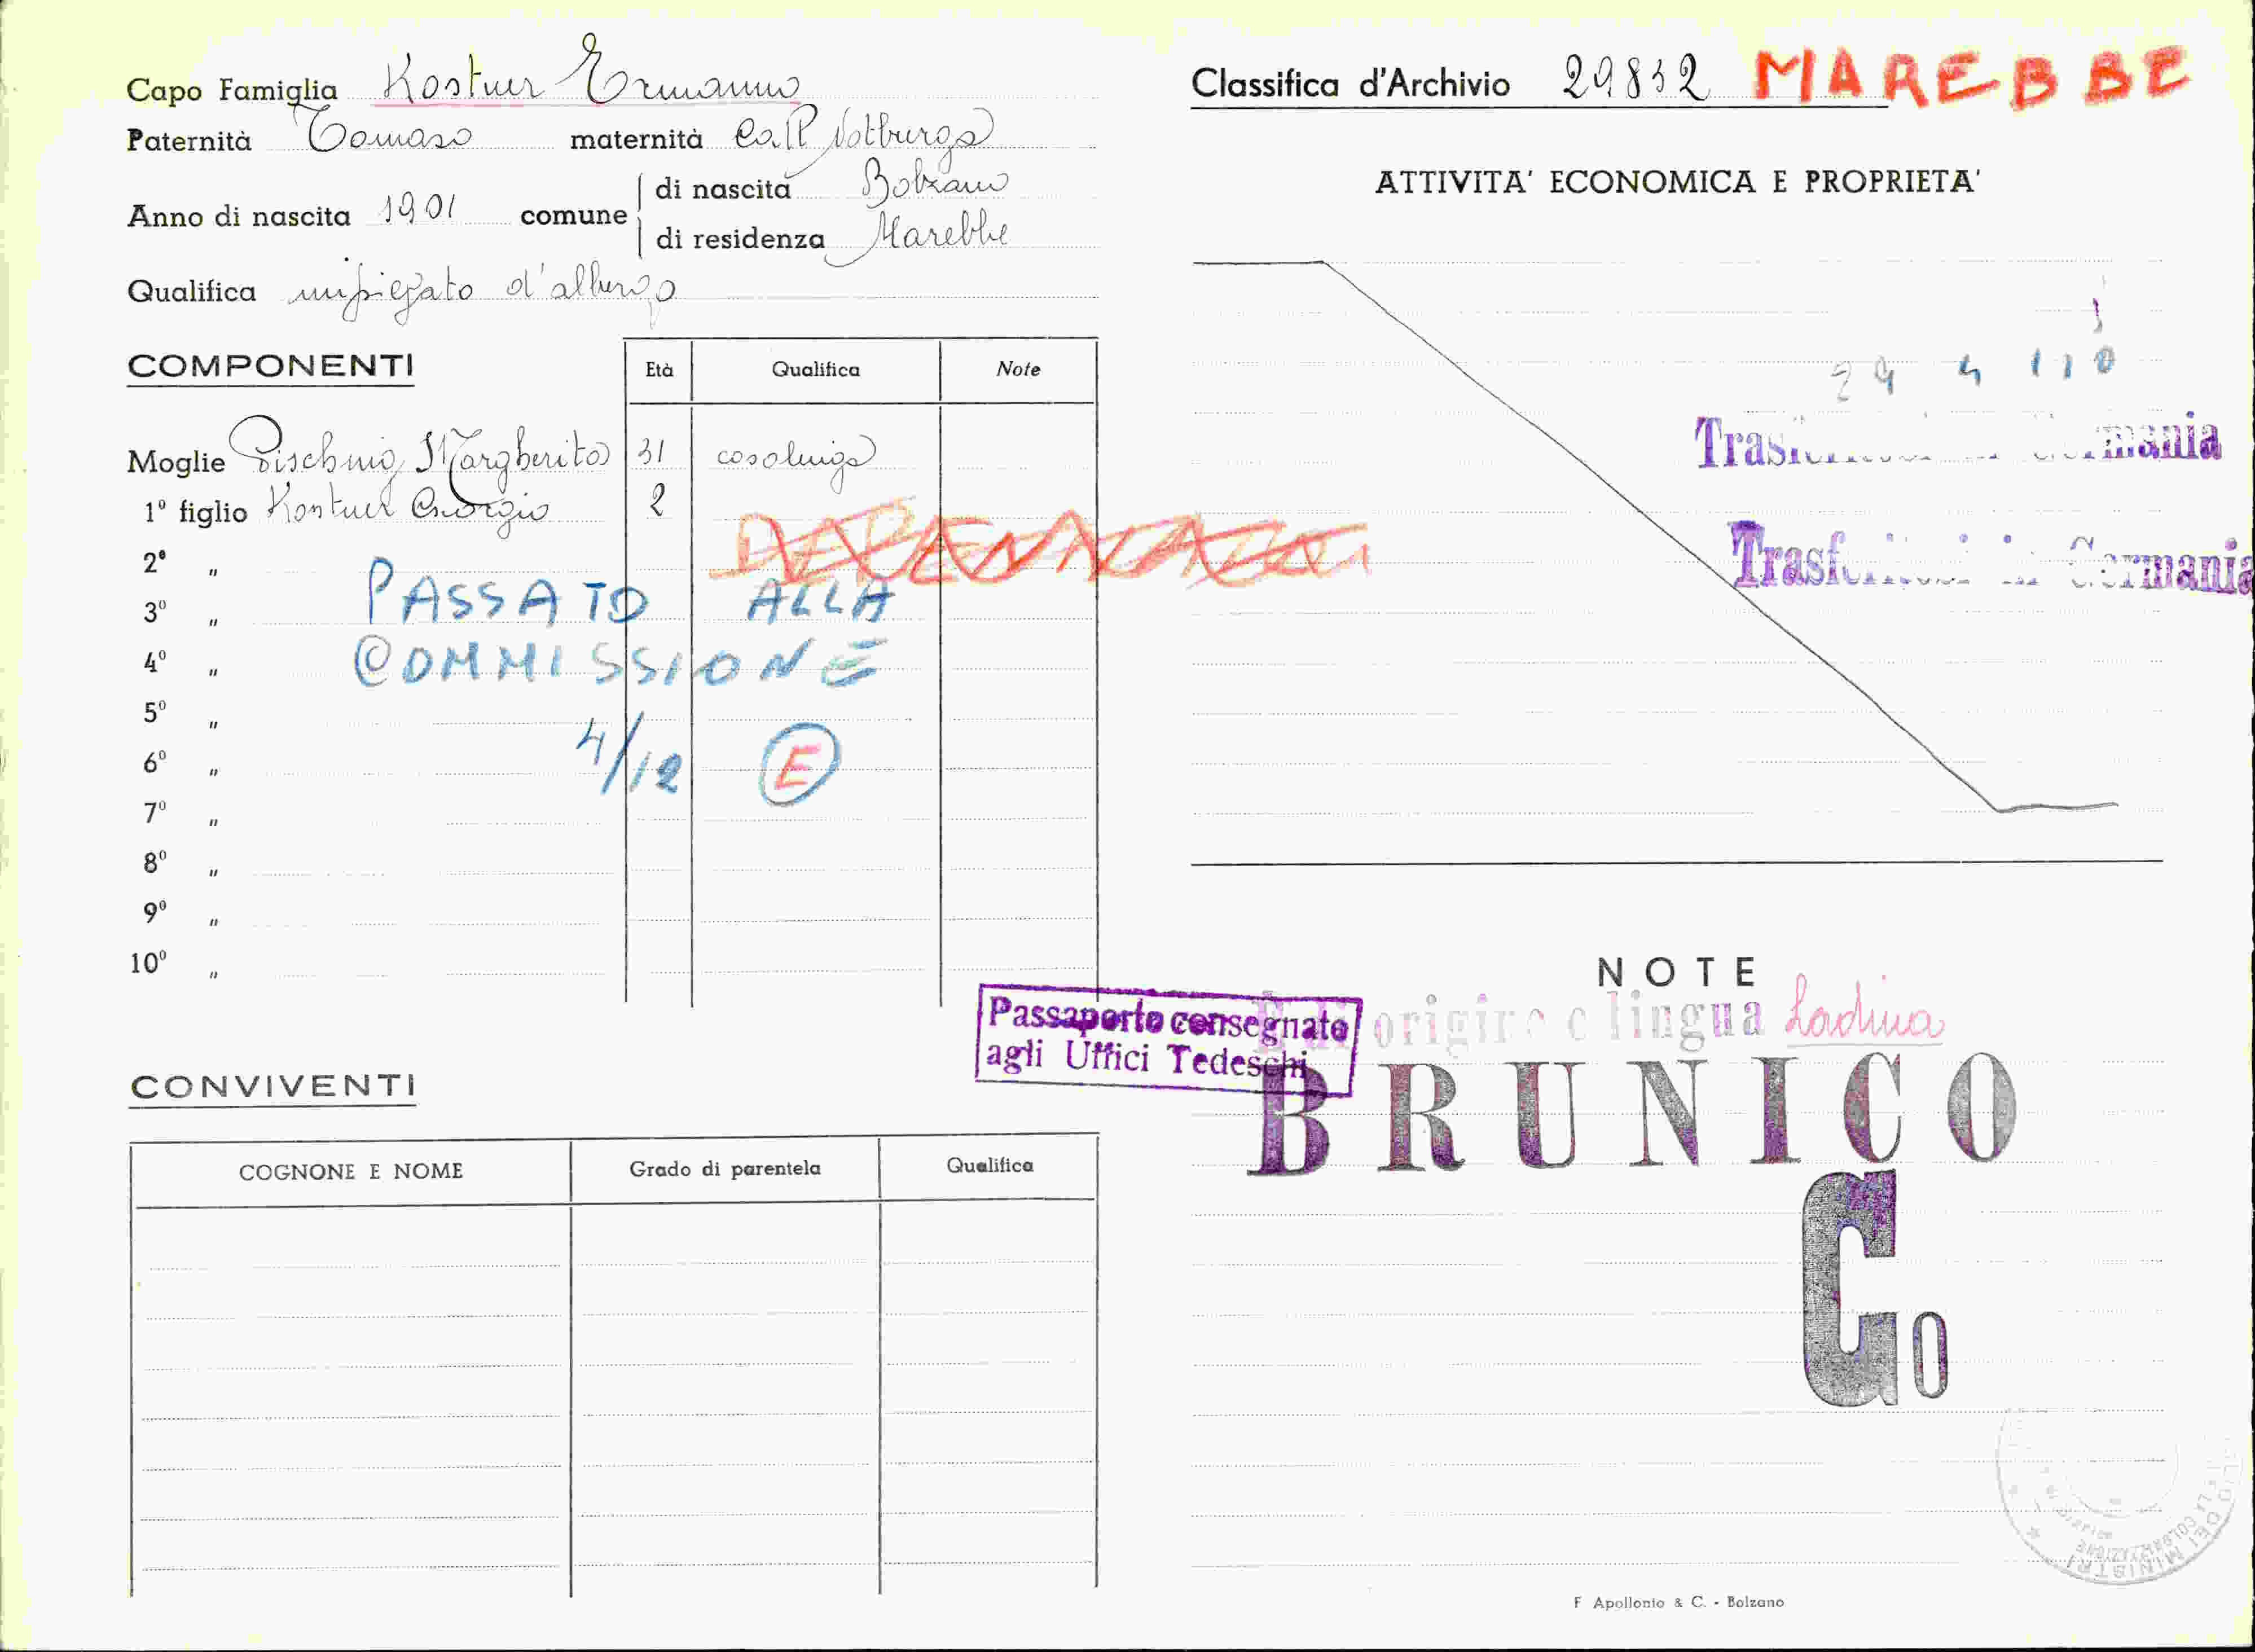 Capo Famiglia Kostner Ermanno
Paternità Tomaso maternità Notburga
Anno di nascita 1901 comune di nascita Bolzano
di residenza Marebbe
Qualifica impiegato d'albergo
COMPONENTI
Età Qualifica Note
Moglie Pischnig Margherita 31 casalinga
1º figlio Kostner Giorgio 2
2º "
3º "
4º "
5º "
6º "
7º "
8º "
9º "
10º "
PASSATO ALLA
COMMISSIONE
4/12 E
CONVIVENTI
COGNONE E NOME Grado di parentela Qualifica
Classifica d'Archivio 29832 MAREBBE
ATTIVITA' ECONOMICA E PROPRIETA'
29 4
Trasferitosi in Germania
Trasferitosi in Germania
NOTE
Passaporto consegnato
agli Uffici Tedeschi
E di origine e lingua Ladina
BRUNICO
Go
F Apollonio & C. - Bolzano